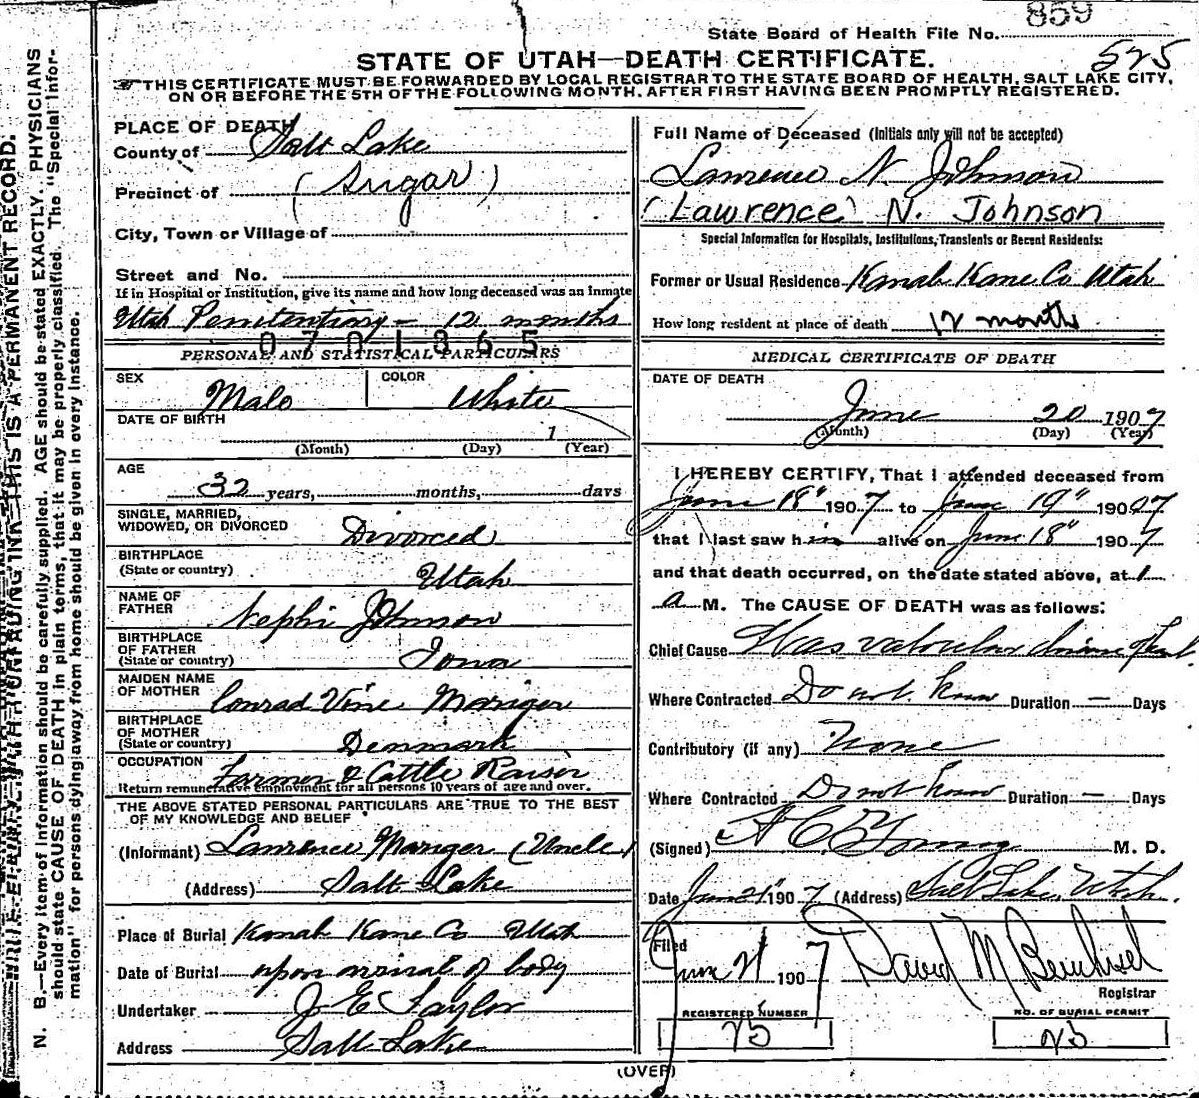 859
State Board of Health File No.
525
STATE OF UTAH—DEATH CERTIFICATE.
THIS CERTIFICATE MUST BE FORWARDED BY LOCAL REGISTRAR TO THE STATE BOARD OF HEALTH, SALT LAKE CITY,
ON OR BEFORE THE 5TH OF THE FOLLOWING MONTH, AFTER FIRST HAVING BEEN PROMPTLY REGISTERED.
N. B.—Every item of information should be carefully supplied. AGE should be stated EXACTLY. PHYSICIANS
should state CAUSE OF DEATH in plain terms, that it may be properly classified. The "Special Infor-
mation" for persons dying away from home should be given in every instance.
THIS IS A PERMANENT RECORD.
PLACE OF DEATH
County of Salt Lake
Precinct of (Sugar)
City, Town or Village of
Street and No.
If in Hospital or Institution, give its name and how long deceased was an Inmate
Utah Penitentiary - 12 months
0701365
PERSONAL AND STATISTICAL PARTICULARS
SEX Male COLOR White
DATE OF BIRTH 1
(Month) (Day) (Year)
AGE 32 years, months, days
SINGLE, MARRIED,
WIDOWED, OR DIVORCED Divorced
BIRTHPLACE
(State or country) Utah
NAME OF
FATHER Nephi Johnson
BIRTHPLACE
OF FATHER
(State or country) Iowa
MAIDEN NAME
OF MOTHER Conrad Vine Mariger
BIRTHPLACE
OF MOTHER
(State or country) Denmark
OCCUPATION Farmer & Cattle Raiser
Return remunerative employment for all persons 10 years of age and over.
THE ABOVE STATED PERSONAL PARTICULARS ARE TRUE TO THE BEST
OF MY KNOWLEDGE AND BELIEF
(Informant) Lawrence Mariger (Uncle)
(Address) Salt Lake
Place of Burial Kanab Kane Co Utah
Date of Burial upon arrival of body
Undertaker J E Taylor
Address Salt Lake
Full Name of Deceased (Initials only will not be accepted)
Lawrence N. Johnson
(Lawrence) N. Johnson
Special Information for Hospitals, Institutions, Transients or Recent Residents:
Former or Usual Residence Kanab Kane Co Utah
How long resident at place of death 12 months
MEDICAL CERTIFICATE OF DEATH
DATE OF DEATH
June 20 1907
(Month) (Day) (Year)
I HEREBY CERTIFY, That I attended deceased from
June 18" 1907 to June 19" 1907
that I last saw him alive on June 18" 1907
and that death occurred, on the date stated above, at 1
a M. The CAUSE OF DEATH was as follows:
Chief Cause Was valvular
Where Contracted Do not know Duration — Days
Contributory (if any) None
Where Contracted Do not know Duration — Days
(Signed) A C Young M. D.
Date June 21" 1907 (Address) Salt Lake, Utah.
Filed
June 21 1907 David M
Registrar
REGISTERED NUMBER NO. OF BURIAL PERMIT
25 25
(OVER)